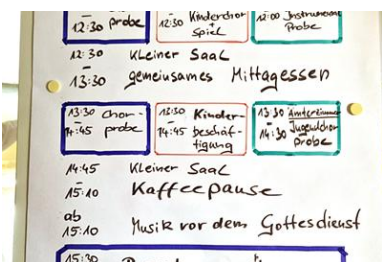 12:30 probe
12:30 Kinderchor + Spiel
12:00 Instrumental Probe
12:30 Kleiner Saal
13:30 gemeinsames Mittagessen
13:30 Chor-
14:45 probe
13:30 Kinder-
14:45 beschäf-
tigung
13:30
14:30 Jugendchor
Probe
14:45 Kleiner Saal
15:10 Kaffeepause
ab
15:10 Musik vor dem Gottesdienst
15:30